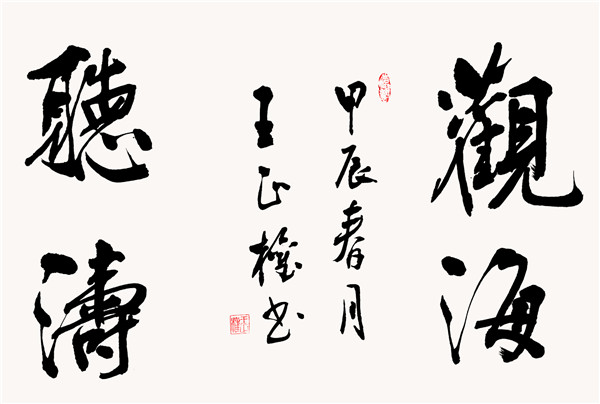 觀海
甲辰春月
王正權书
聽濤